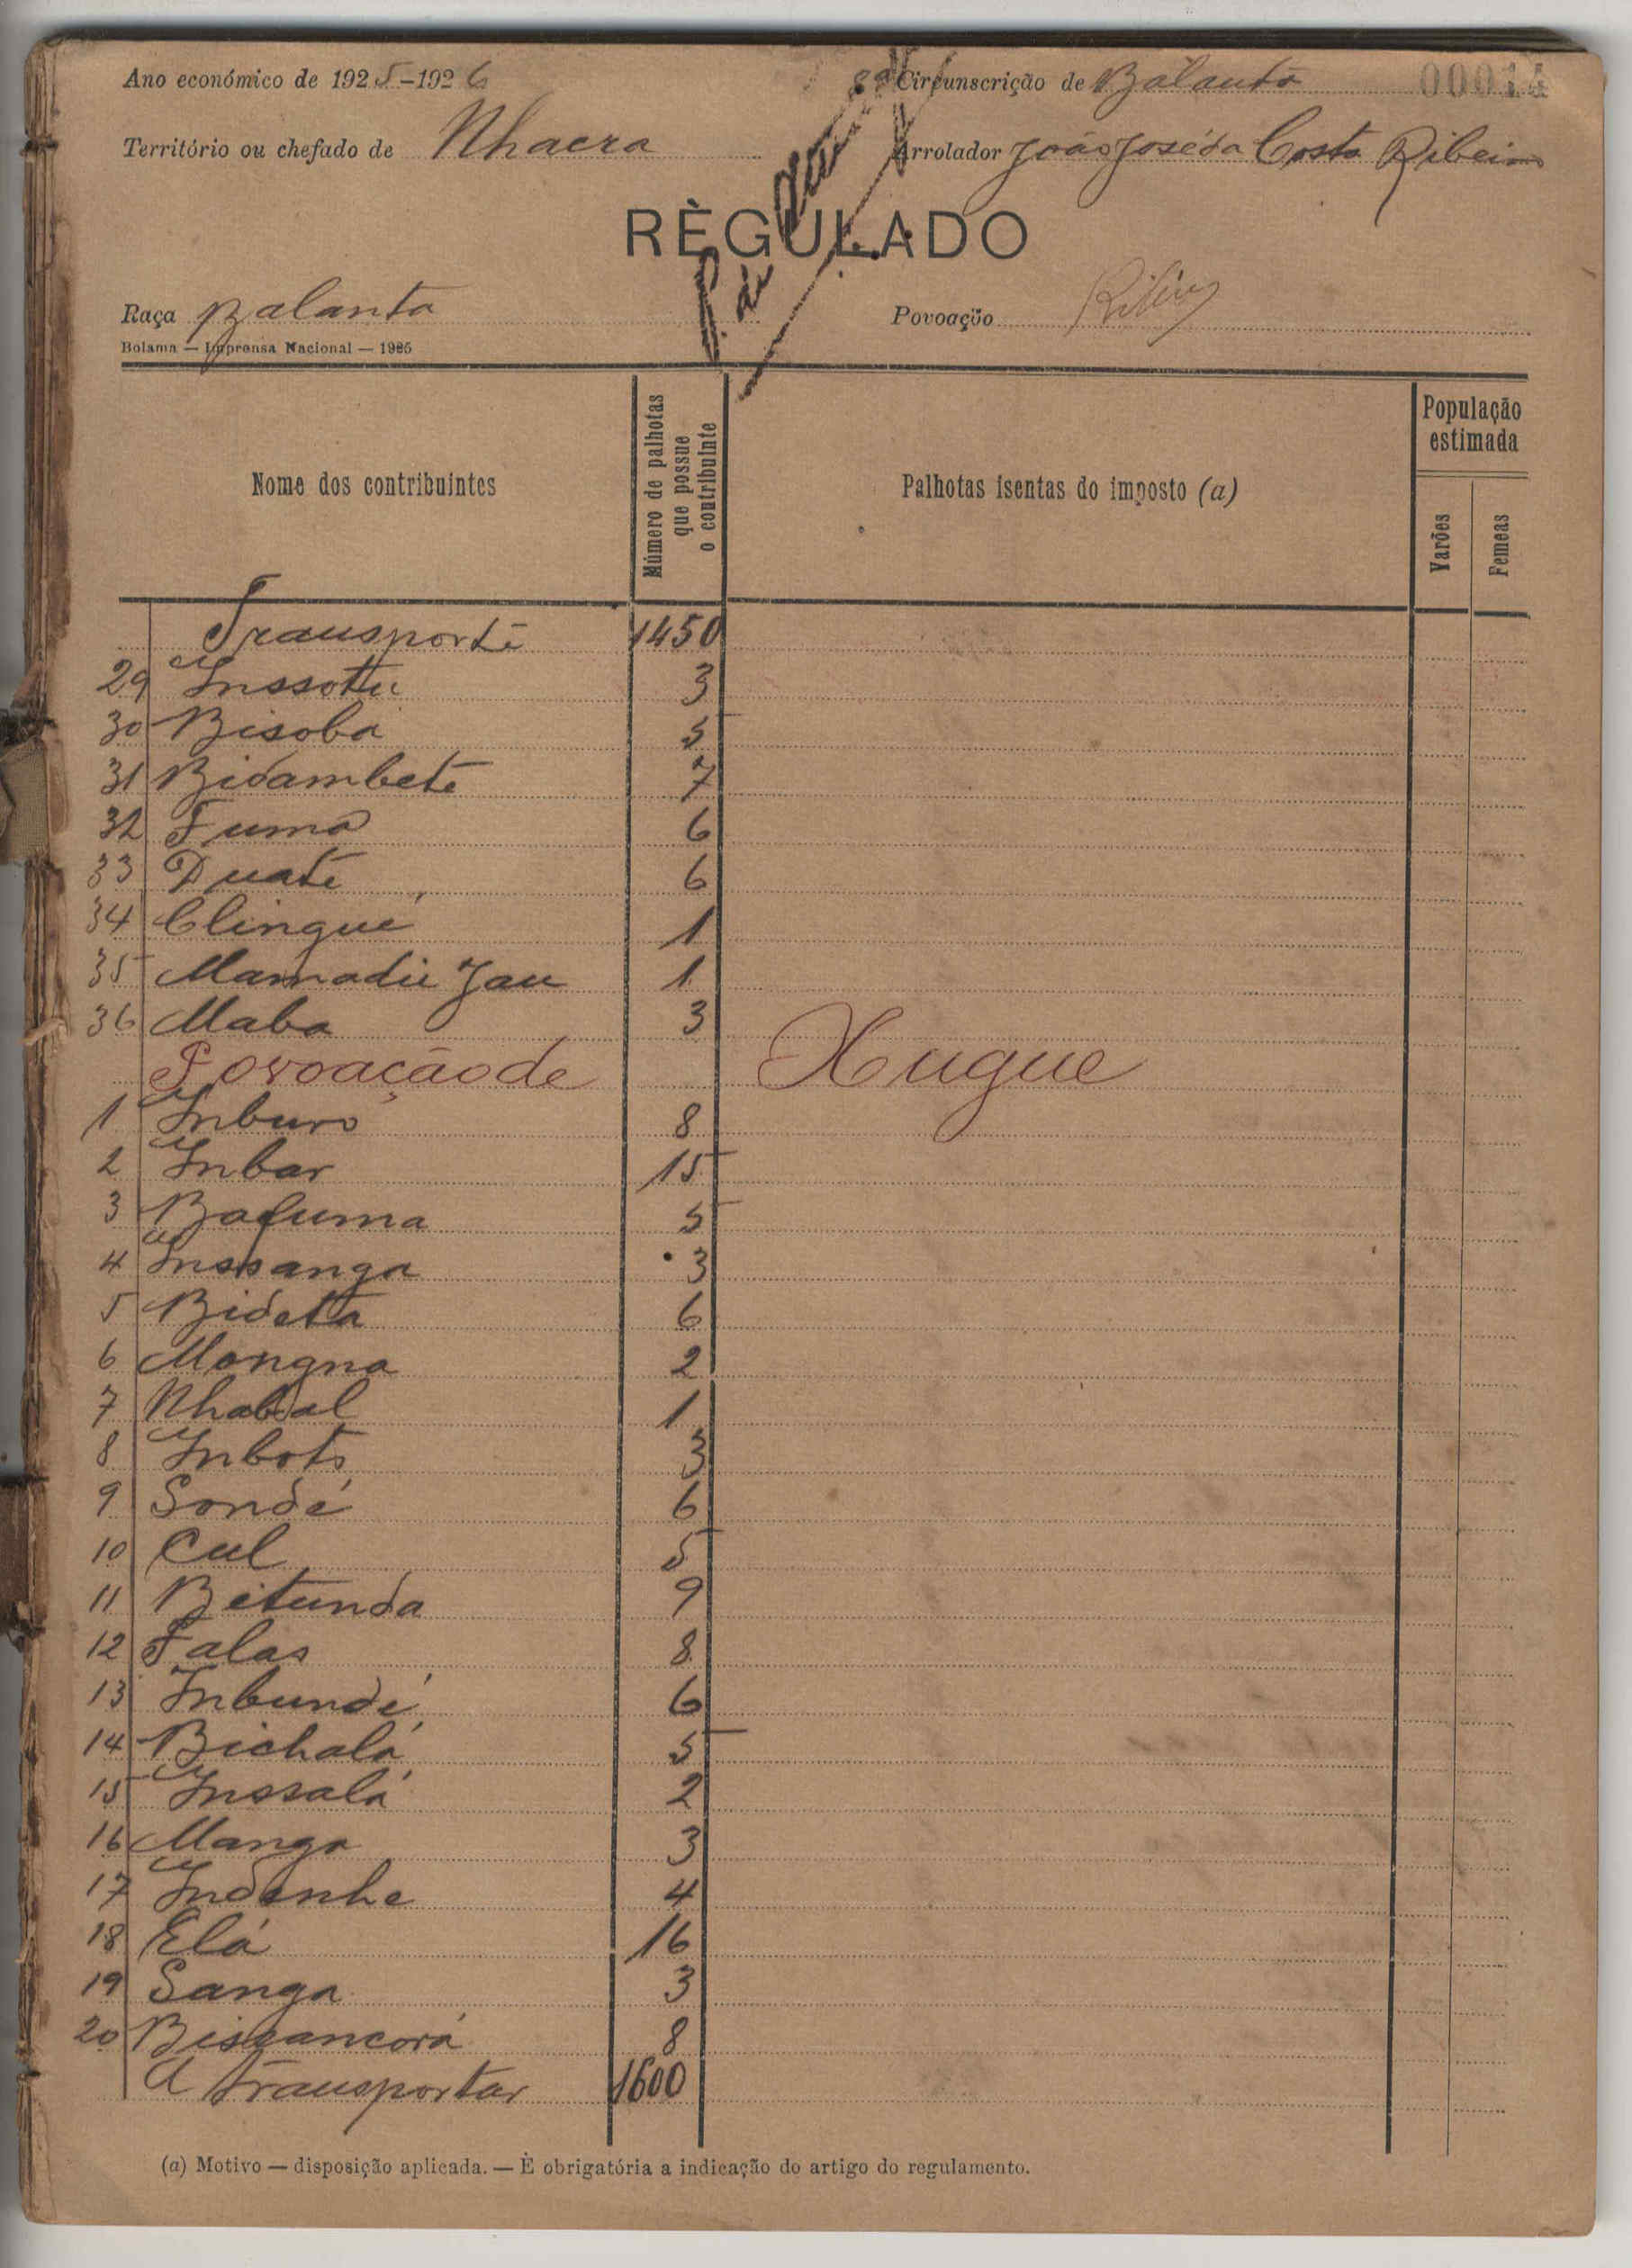 Ano económico de 1925-1926 Circunscrição de Balanta 00014
Território ou chefado de Nhacra Arrolador João José da Costa Ribeiro
RÈGULADO
Raça Balanta Povoação
Bolama — Imprensa Nacional — 1925
Nome dos contribuintes
Número de palhotas que possue o contribuinte
Palhotas isentas do imposto (a)
População estimada
Varões
Femeas
Transporte 1450
29 Inssotu 3
30 Bisoba 5
31 Bidambete 7
32 Fuma 6
33 Duate 6
34 Clingué 1
35 Mamadú Jau 1
36 Maba 3
Povoação de Xugue
1 Inburo 8
2 Inbar 15
3 Bafuma 5
4 Inssanga 3
5 Bideta 6
6 Mongna 2
7 Nhabal 1
8 Inbots 3
9 Sondé 6
10 Cul 5
11 Bitunda 9
12 Falas 8
13 Inbundé 6
14 Bichalá 5
15 Inssalá 2
16 Manga 3
17 Indenhe 4
18 Elá 16
19 Sanga 3
20 Bissancorá 8
A transportar 1600
(a) Motivo — disposição aplicada. — È obrigatória a indicação do artigo do regulamento.